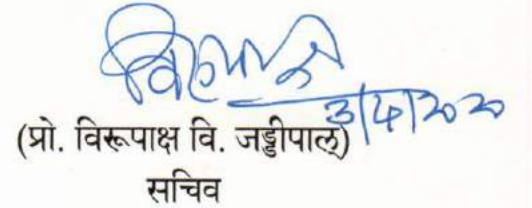 विरूपाक्ष
3/4/2020
(प्रो. विरूपाक्ष वि. जड्डीपाल्)
सचिव